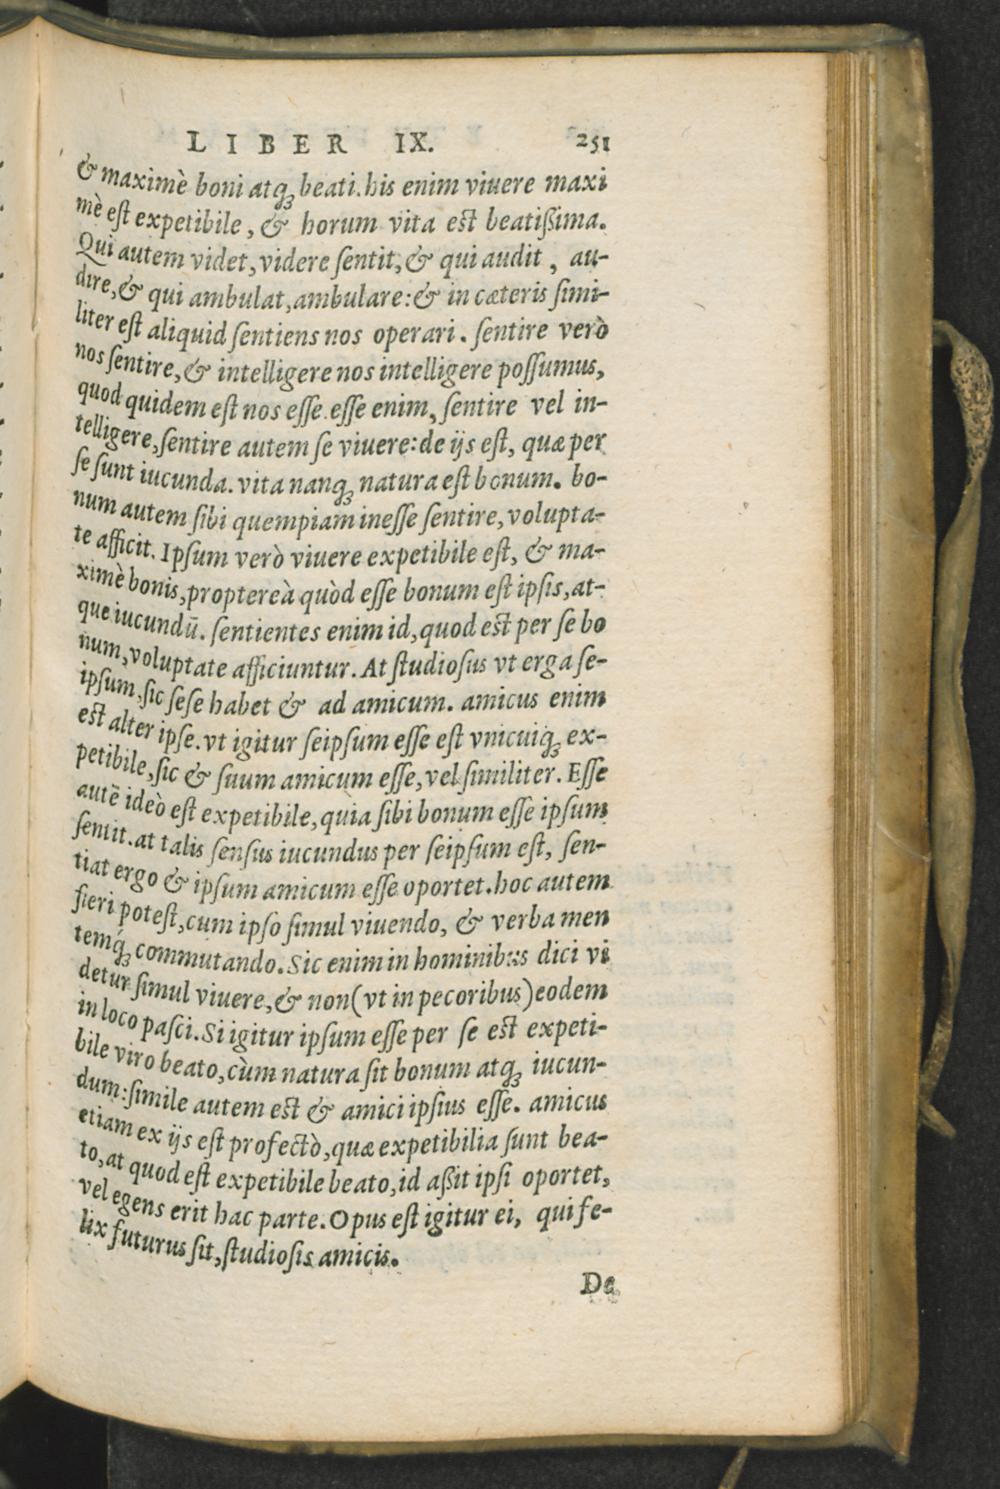 LIBER IX. 251
& maximè boni atq; beati. his enim viuere maxi
mè est expetibile, & horum vita est beatißima.
Qui autem videt, videre sentit, & qui audit, au-
dire, & qui ambulat, ambulare: & in cæteris simi-
liter est aliquid sentiens nos operari. sentire verò
nos sentire, & intelligere nos intelligere possumus,
quod quidem est nos esse. esse enim, sentire vel in-
telligere, sentire autem se viuere: de ijs est, quæ per
se sunt iucunda. vita nanq; natura est bonum. bo-
num autem sibi quempiam inesse sentire, volupta-
te afficit. Ipsum verò viuere expetibile est, & ma-
ximè bonis, proptereà quòd esse bonum est ipsis, at-
que iucundũ. sentientes enim id, quod est per se bo
num, voluptate afficiuntur. At studiosus vt erga se-
ipsum, sic sese habet & ad amicum. amicus enim
est alter ipse. vt igitur seipsum esse est vnicuiq; ex-
petibile, sic & suum amicum esse, vel similiter. Esse
autẽ ideò est expetibile, quia sibi bonum esse ipsum
sentit. at talis sensus iucundus per seipsum est, sen-
tiat ergo & ipsum amicum esse oportet. hoc autem
fieri potest, cum ipso simul viuendo, & verba men
temq́; commutando. Sic enim in hominibus dici vi
detur simul viuere, & non (vt in pecoribus) eodem
in loco pasci. Si igitur ipsum esse per se est expeti-
bile viro beato, cùm natura sit bonum atq; iucun-
dum: simile autem est & amici ipsius esse. amicus
etiam ex ijs est profectò, quæ expetibilia sunt bea-
to, at quod est expetibile beato, id aßit ipsi oportet,
vel egens erit hac parte. Opus est igitur ei, qui fe-
lix futurus sit, studiosis amicis.
De